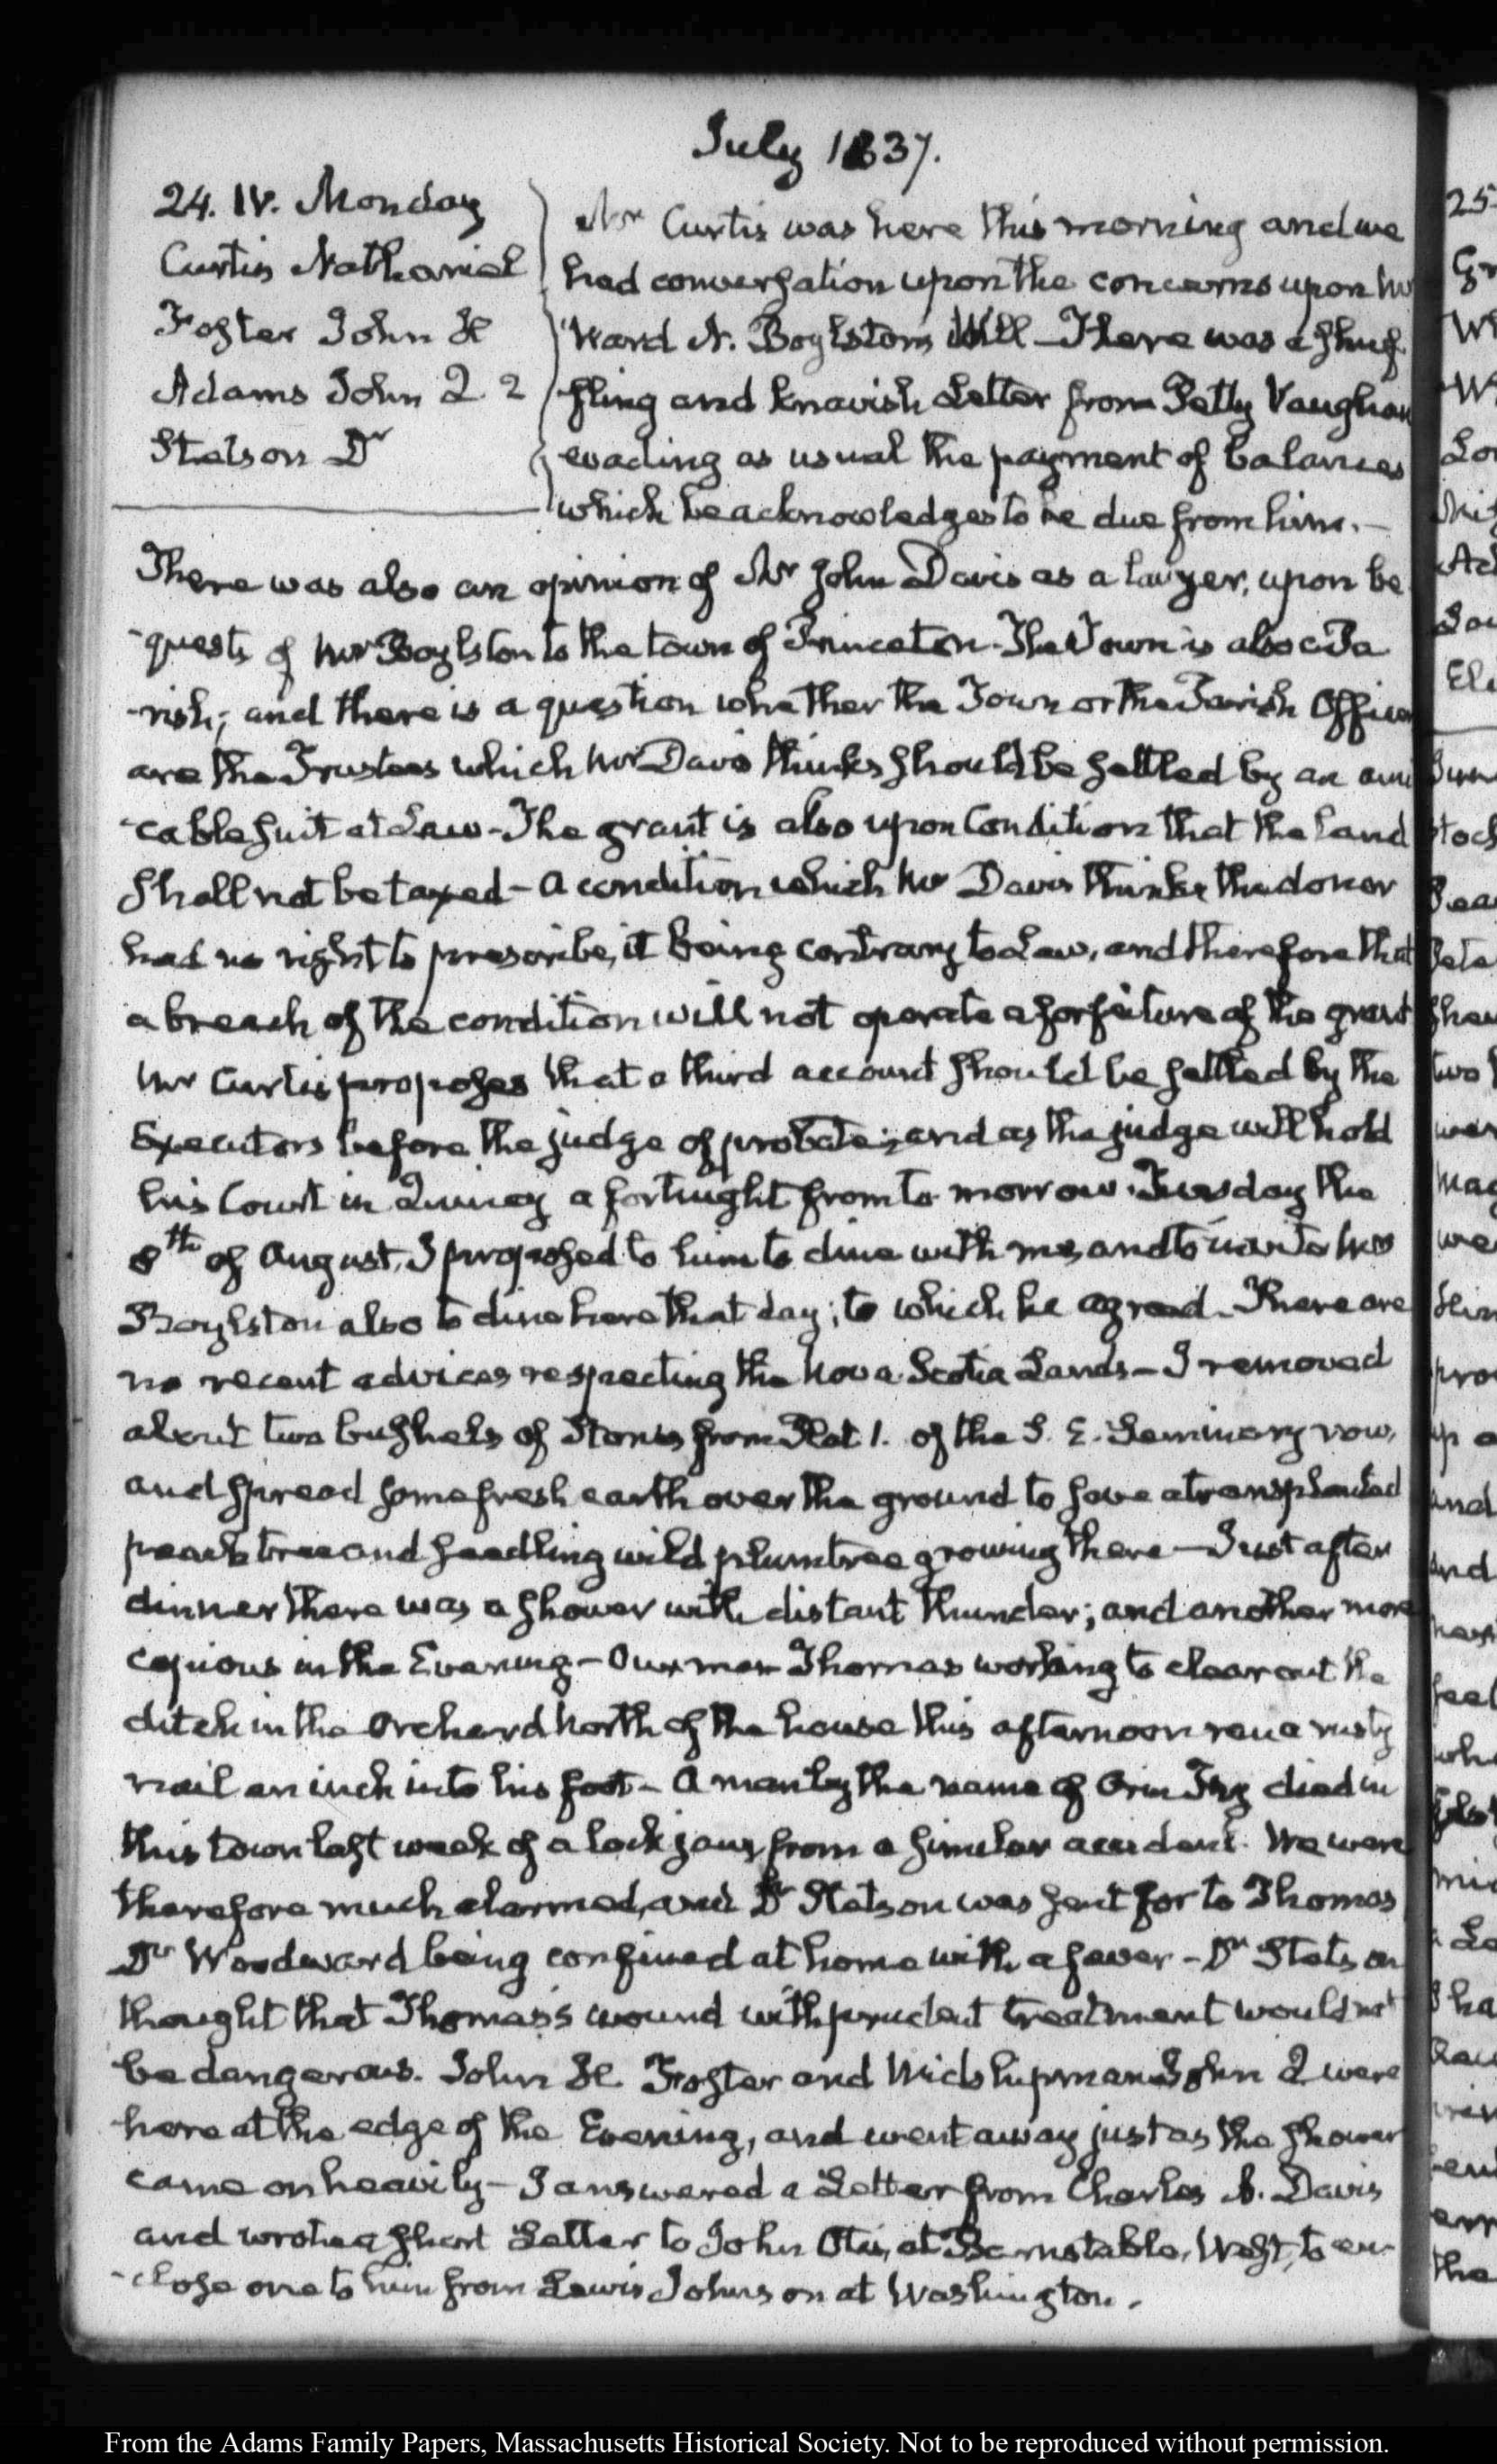 July 1837.
24. IV. Monday
Curtis Nathaniel
Foster John H
Adams John Q. 2
Stetson Dr
Mr Curtis was here this morning and we
had conversation upon the concerns upon
Ward N. Boylston's Will – There was a shuf
fling and knavish Letter from Petty Vaughan
evading as usual the payment of balances
which he acknowledges to be due from him. –
There was also an opinion of Mr John Davis as a lawyer, upon be
-quests of Mr Boylston to the town of Princeton. The Town is also a Pa
-rish; and there is a question whether the Town or the Parish Officers
are the Trustees which Mr Davis thinks should be settled by an ami
-cable suit at Law – The grant is also upon Condition that the land
shall not be taxed – a condition which Mr Davis thinks the donor
had no right to prescribe, it being contrary to Law, and therefore that
a breach of the condition will not operate a forfeiture of the grant
Mr Curtis proposes that a third account should be settled by the
Executors before the judge of probate; and as the judge will hold
his Court in Quincy a fortnight from to-morrow, Tuesday the
8th of August, I proposed to him to dine with me, and to invite Mrs
Boylston also to dine here that day; to which he agreed. There are
no recent advices respecting the Nova Scotia Lands – I removed
about two bushels of Stones from Plat 1. of the S. E. Seminary row,
and spread some fresh earth over the ground to save a transplanted
peach tree and seedling wild plumtree growing there – Just after
dinner there was a shower with distant thunder; and another more
copious in the Evening – Our man Thomas working to clear out the
ditch in the Orchard North of the house this afternoon run a rusty
nail an inch into his foot – A man by the name of Orin died in
this town last week of a lock jaw, from a similar accident. We were
therefore much alarmed, and Dr Stetson was sent for to Thomas
Dr Woodward being confined at home with a fever – Dr Stetson
thought that Thomas's wound with prudent treatment would not
be dangerous. John H. Foster and Midshipman John Q were
here at the edge of the Evening, and went away just as the shower
came on heavily – I answered a Letter from Charles A. Davis
and wrote a short Letter to John Otis, at Barnstable, West, to en-
-close one to him from Lewis Johnson at Washington.
From the Adams Family Papers, Massachusetts Historical Society. Not to be reproduced without permission.